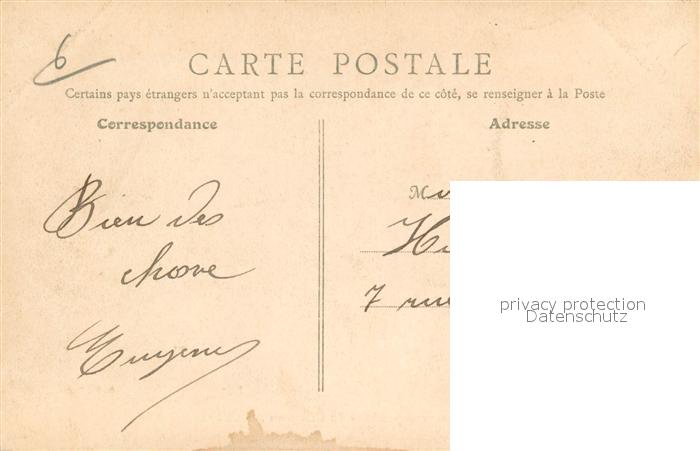 6
CARTE POSTALE
Certains pays étrangers n'acceptant pas la correspondance de ce côté, se renseigner à la Poste
Correspondance
Adresse
Bien des
chose
M
7 rue
privacy protection
Datenschutz